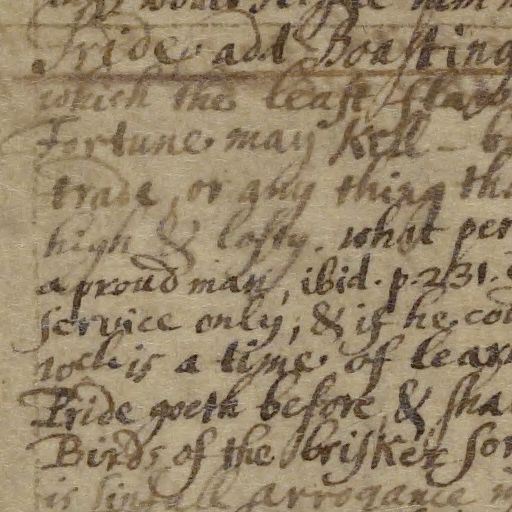 Pride add Boasting
which the least flaw
Fortune may Kell - b
trade, or any thing tha
high & lofty. what per
a proud man, ibid. p. 231.
service only, & if he cou
is a time of lear
Pride goeth before, & sha
Birds of the brisker sor
is sinfull arrogance